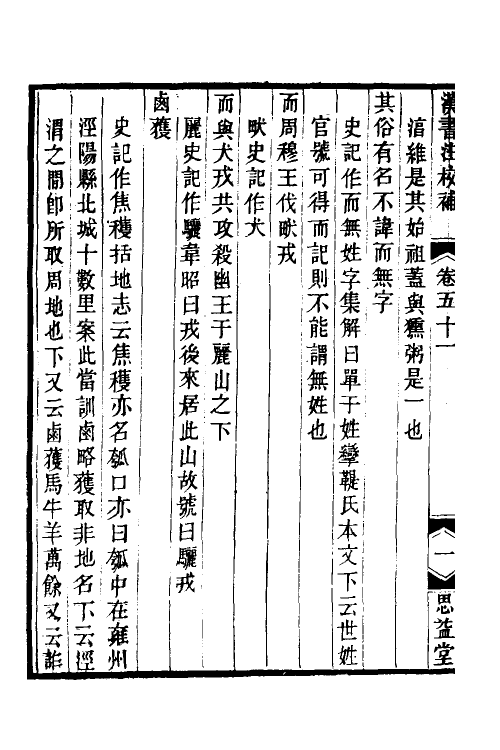 漢書注校補
卷五十一
一
思益堂
淳維是其始祖蓋與獯粥是一也
其俗有名不諱而無字
史記作而無姓字集解曰單于姓攣鞮氏本文下云世姓
官號可得而記則不能謂無姓也
而周穆王伐畎戎
畎史記作犬
而與犬戎共攻殺幽王于麗山之下
麗史記作驪韋昭曰戎後來居此山故號曰驪戎
鹵穫
史記作焦穫括地志云焦穫亦名瓠口亦曰瓠中在雍州
涇陽縣北城十數里案此當訓鹵略獲取非地名下云涇
渭之間卽所取周地也下又云鹵獲馬牛羊萬餘又云詐